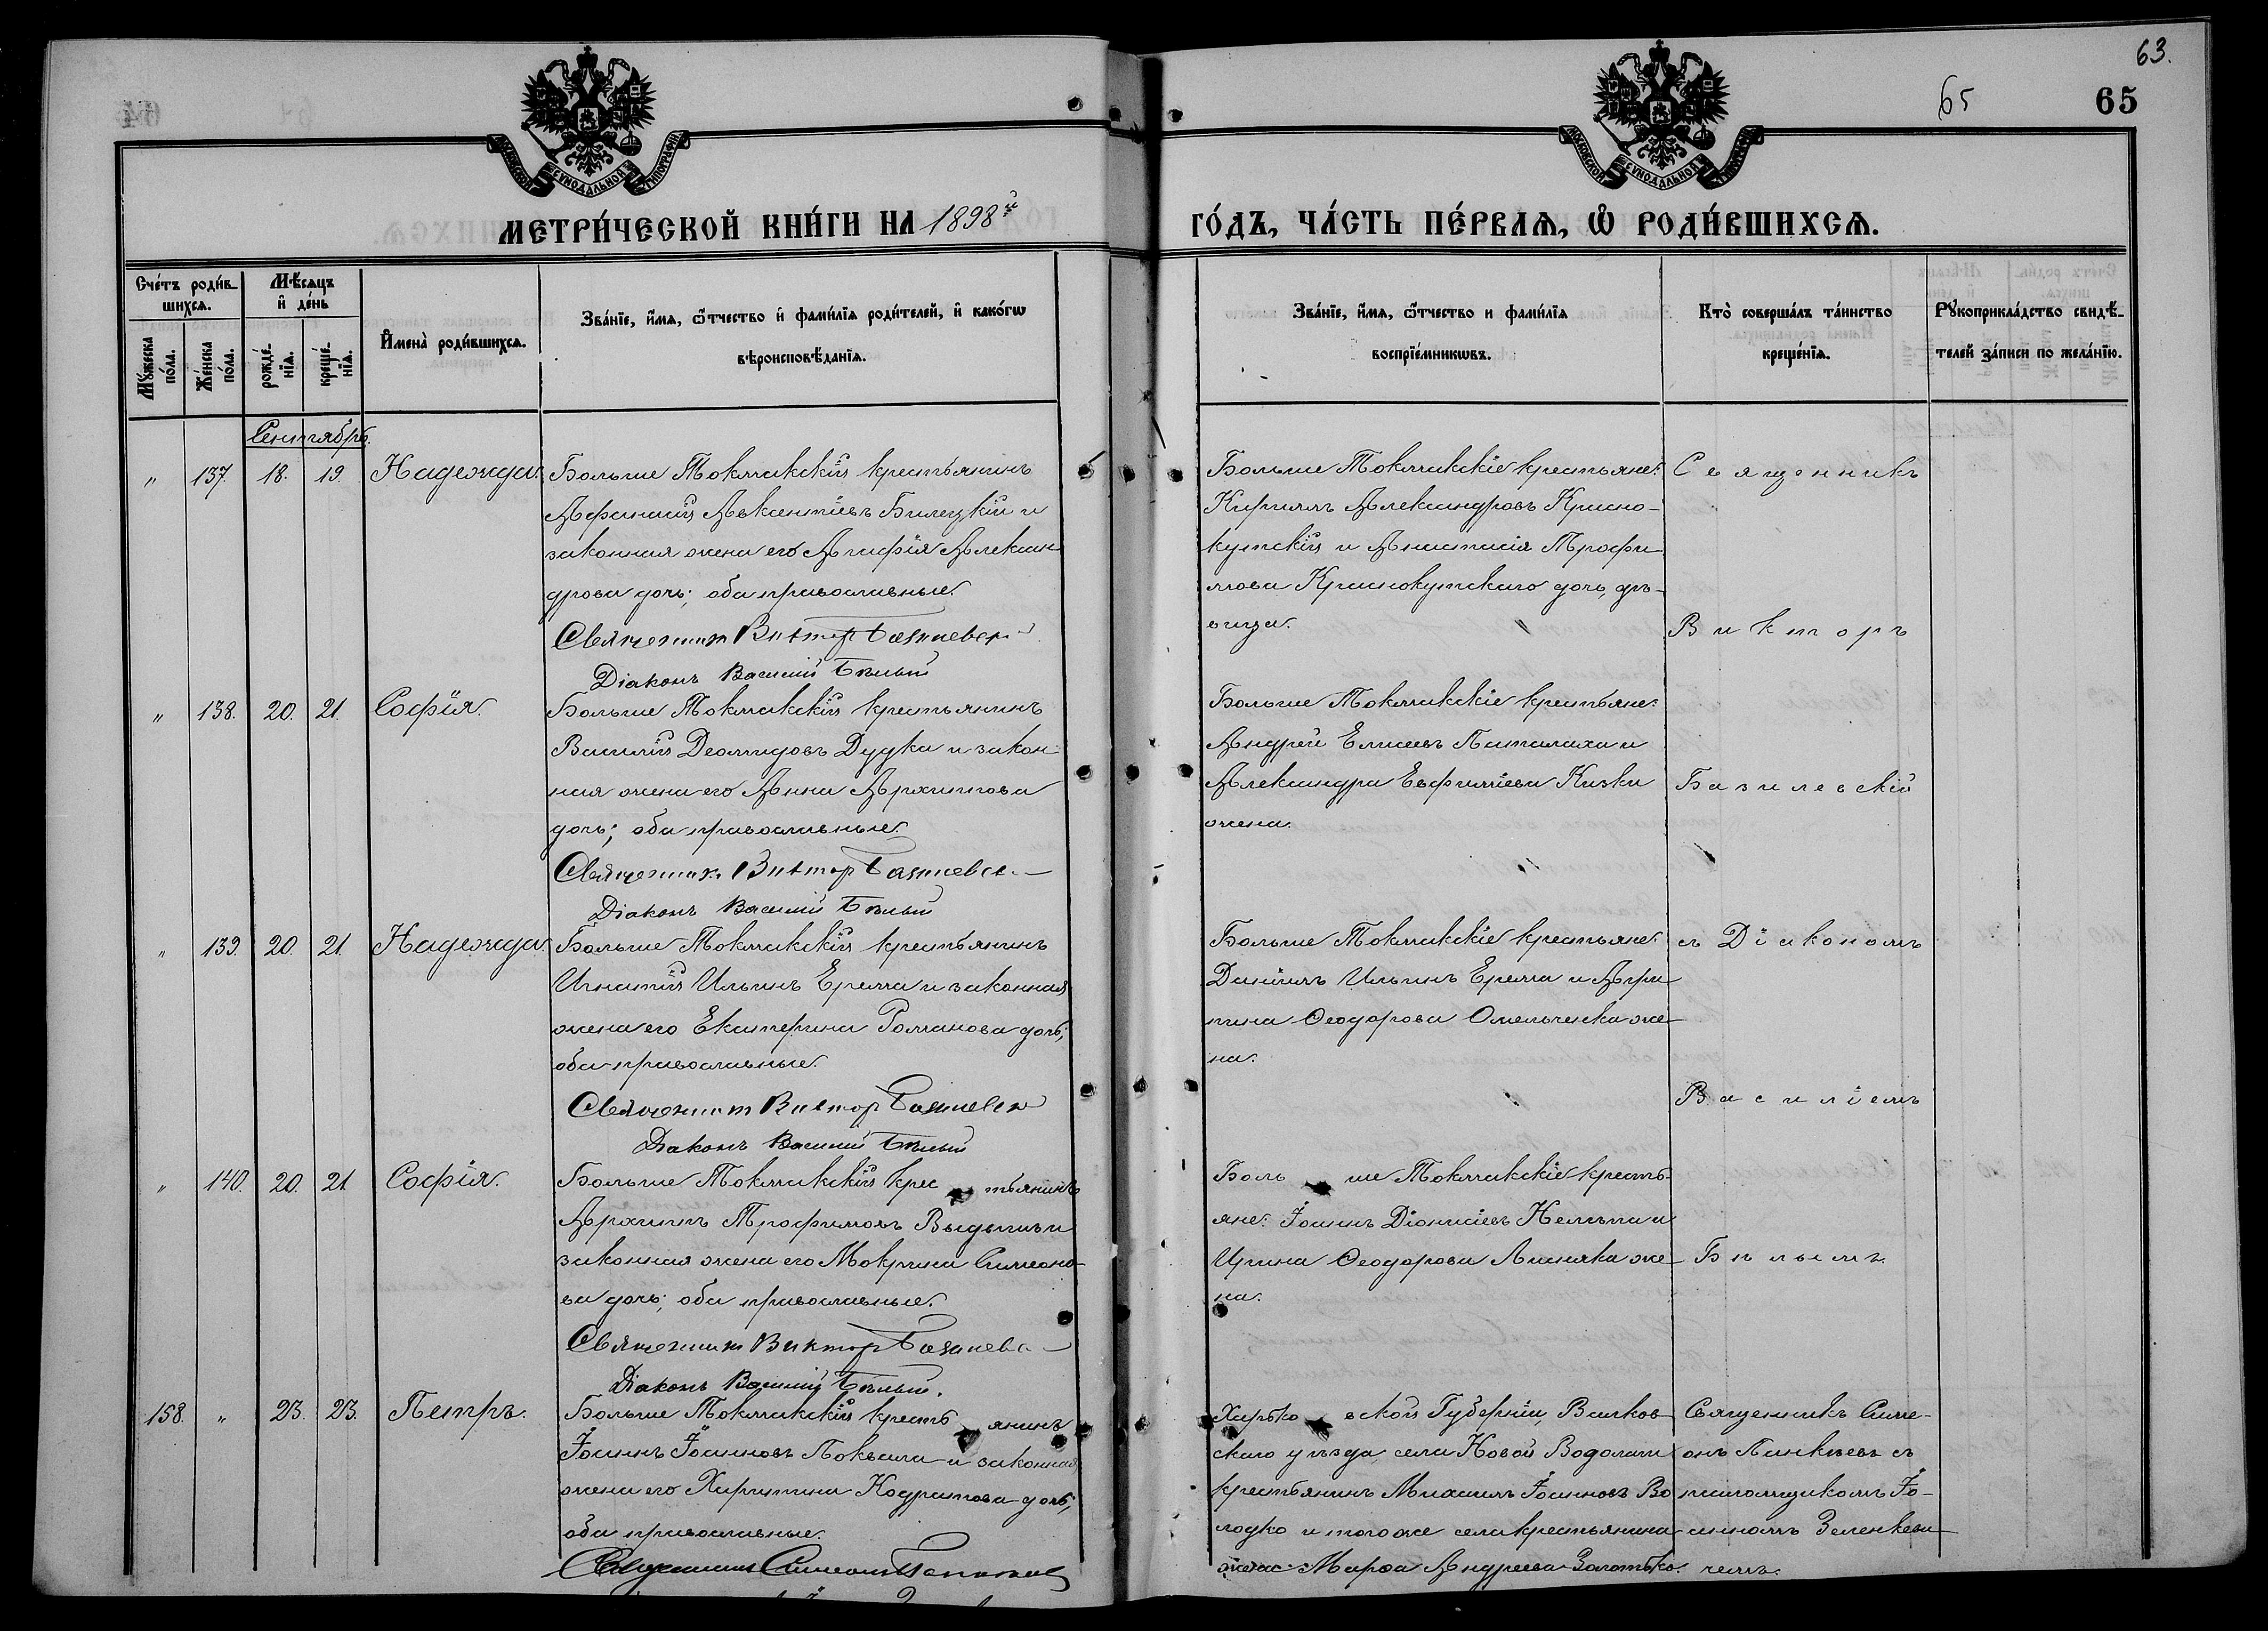 63.
65
65
МОСКОВСКОЙ СѴНОДАЛЬНОЙ ТИПОГРАФІИ
МОСКОВСКОЙ СѴНОДАЛЬНОЙ ТИПОГРАФІИ
МЕТРИ́ЧЕСКОЙ КНИ́ГИ НА 1898й
ГО́ДЪ, ЧА́СТЬ ПЕ́РВАѦ, Ѡ҆ РОДИ́ВШИХСѦ.
Сче́тъ роди́в-
шихсѧ.
Мꙋ́жеска
по́ла.
Же́нска
по́ла.
Мѣ́сѧцъ
и҆ де́нь
рожде́-
нїѧ.
креще́-
нїѧ.
И҆мена̀ роди́вшихсѧ.
Зва́нїе, и҆́мѧ, ѻ҆́тчество и҆ фами́лїѧ роди́телей, и҆ како́гѡ
вѣроисповѣ́данїѧ.
Зва́нїе, и҆́мѧ, ѻ҆́тчество и фами́лїѧ
воспрїе́мникѡвъ.
Кто̀ соверша́лъ та́инство
креще́нїѧ.
Рꙋкоприкла́дство свидѣ́-
телей за́писи по жела́нїю.
Сентябрь.
" 137. 18. 19. Надежда.
Больше Токмакскій крестьянинъ
Афанасій Авксентіевъ Билецкій и
законная жена его Агафія Алексан-
дрова дочь; оба православные.
Священникъ Викторъ Базилевскій
Діаконъ Василій Бѣлый
Больше Токмакскіе крестьяне:
Кириллъ Александровъ Красно-
кутскій и Анастасія Трофи
мова Краснокутскаго дочь, дѣ-
вица.
Священникъ
Викторъ
" 138. 20. 21. Софія.
Больше Токмакскій крестьянинъ
Василій Деомидовъ Дудка и закон-
ная жена его Анна Архиппова
дочь; оба православные.
Священникъ Викторъ Базилевскій
Діаконъ Василій Бѣлый
Больше Токмакскіе крестьяне:
Андрей Елисеевъ Паталаха и
Александра Евфиміева Кизки
жена.
Базилевскій
" 139. 20. 21. Надежда.
Больше Токмакскій крестьянинъ
Игнатій Ильинъ Ерема и законная
жена его Екатерина Романова дочь;
оба православные.
Священникъ Викторъ Базилевскій
Діаконъ Василій Бѣлый
Больше Токмакскіе крестьяне:
Даніилъ Ильинъ Ерема и Агри
пина Ѳеодорова Омельченка же-
на.
съ Діакономъ
Василіемъ
" 140. 20. 21. Софія.
Больше Токмакскій крестьянинъ
Архиппъ Трофимовъ и
законная жена его Мокрина Симеоно-
ва дочь; оба православные.
Священникъ Викторъ Базилевскій
Діаконъ Василій Бѣлый.
Больше Токмакскіе кресть-
яне: Іоаннъ Діонисіевъ и
Ирина Ѳеодорова же-
на.
Бѣлымъ.
158. " 23. 23. Петръ.
Больше Токмакскій крестьянинъ
Іоаннъ Іоанновъ и законная
жена его Харитина Кодратова дочь;
оба православные.
Священникъ Симеонъ
Харьковской Губерніи, Валков-
скаго уѣзда, села Новой Водолаги
крестьянинъ Михаилъ Іоанновъ Во
лодко и тогоже села крестьянина
жена Марѳа Андреева Золотько.
Священникъ Симе-
онъ Панкѣевъ съ
псаломщикомъ Іо-
анномъ Зеленкеви
чемъ.